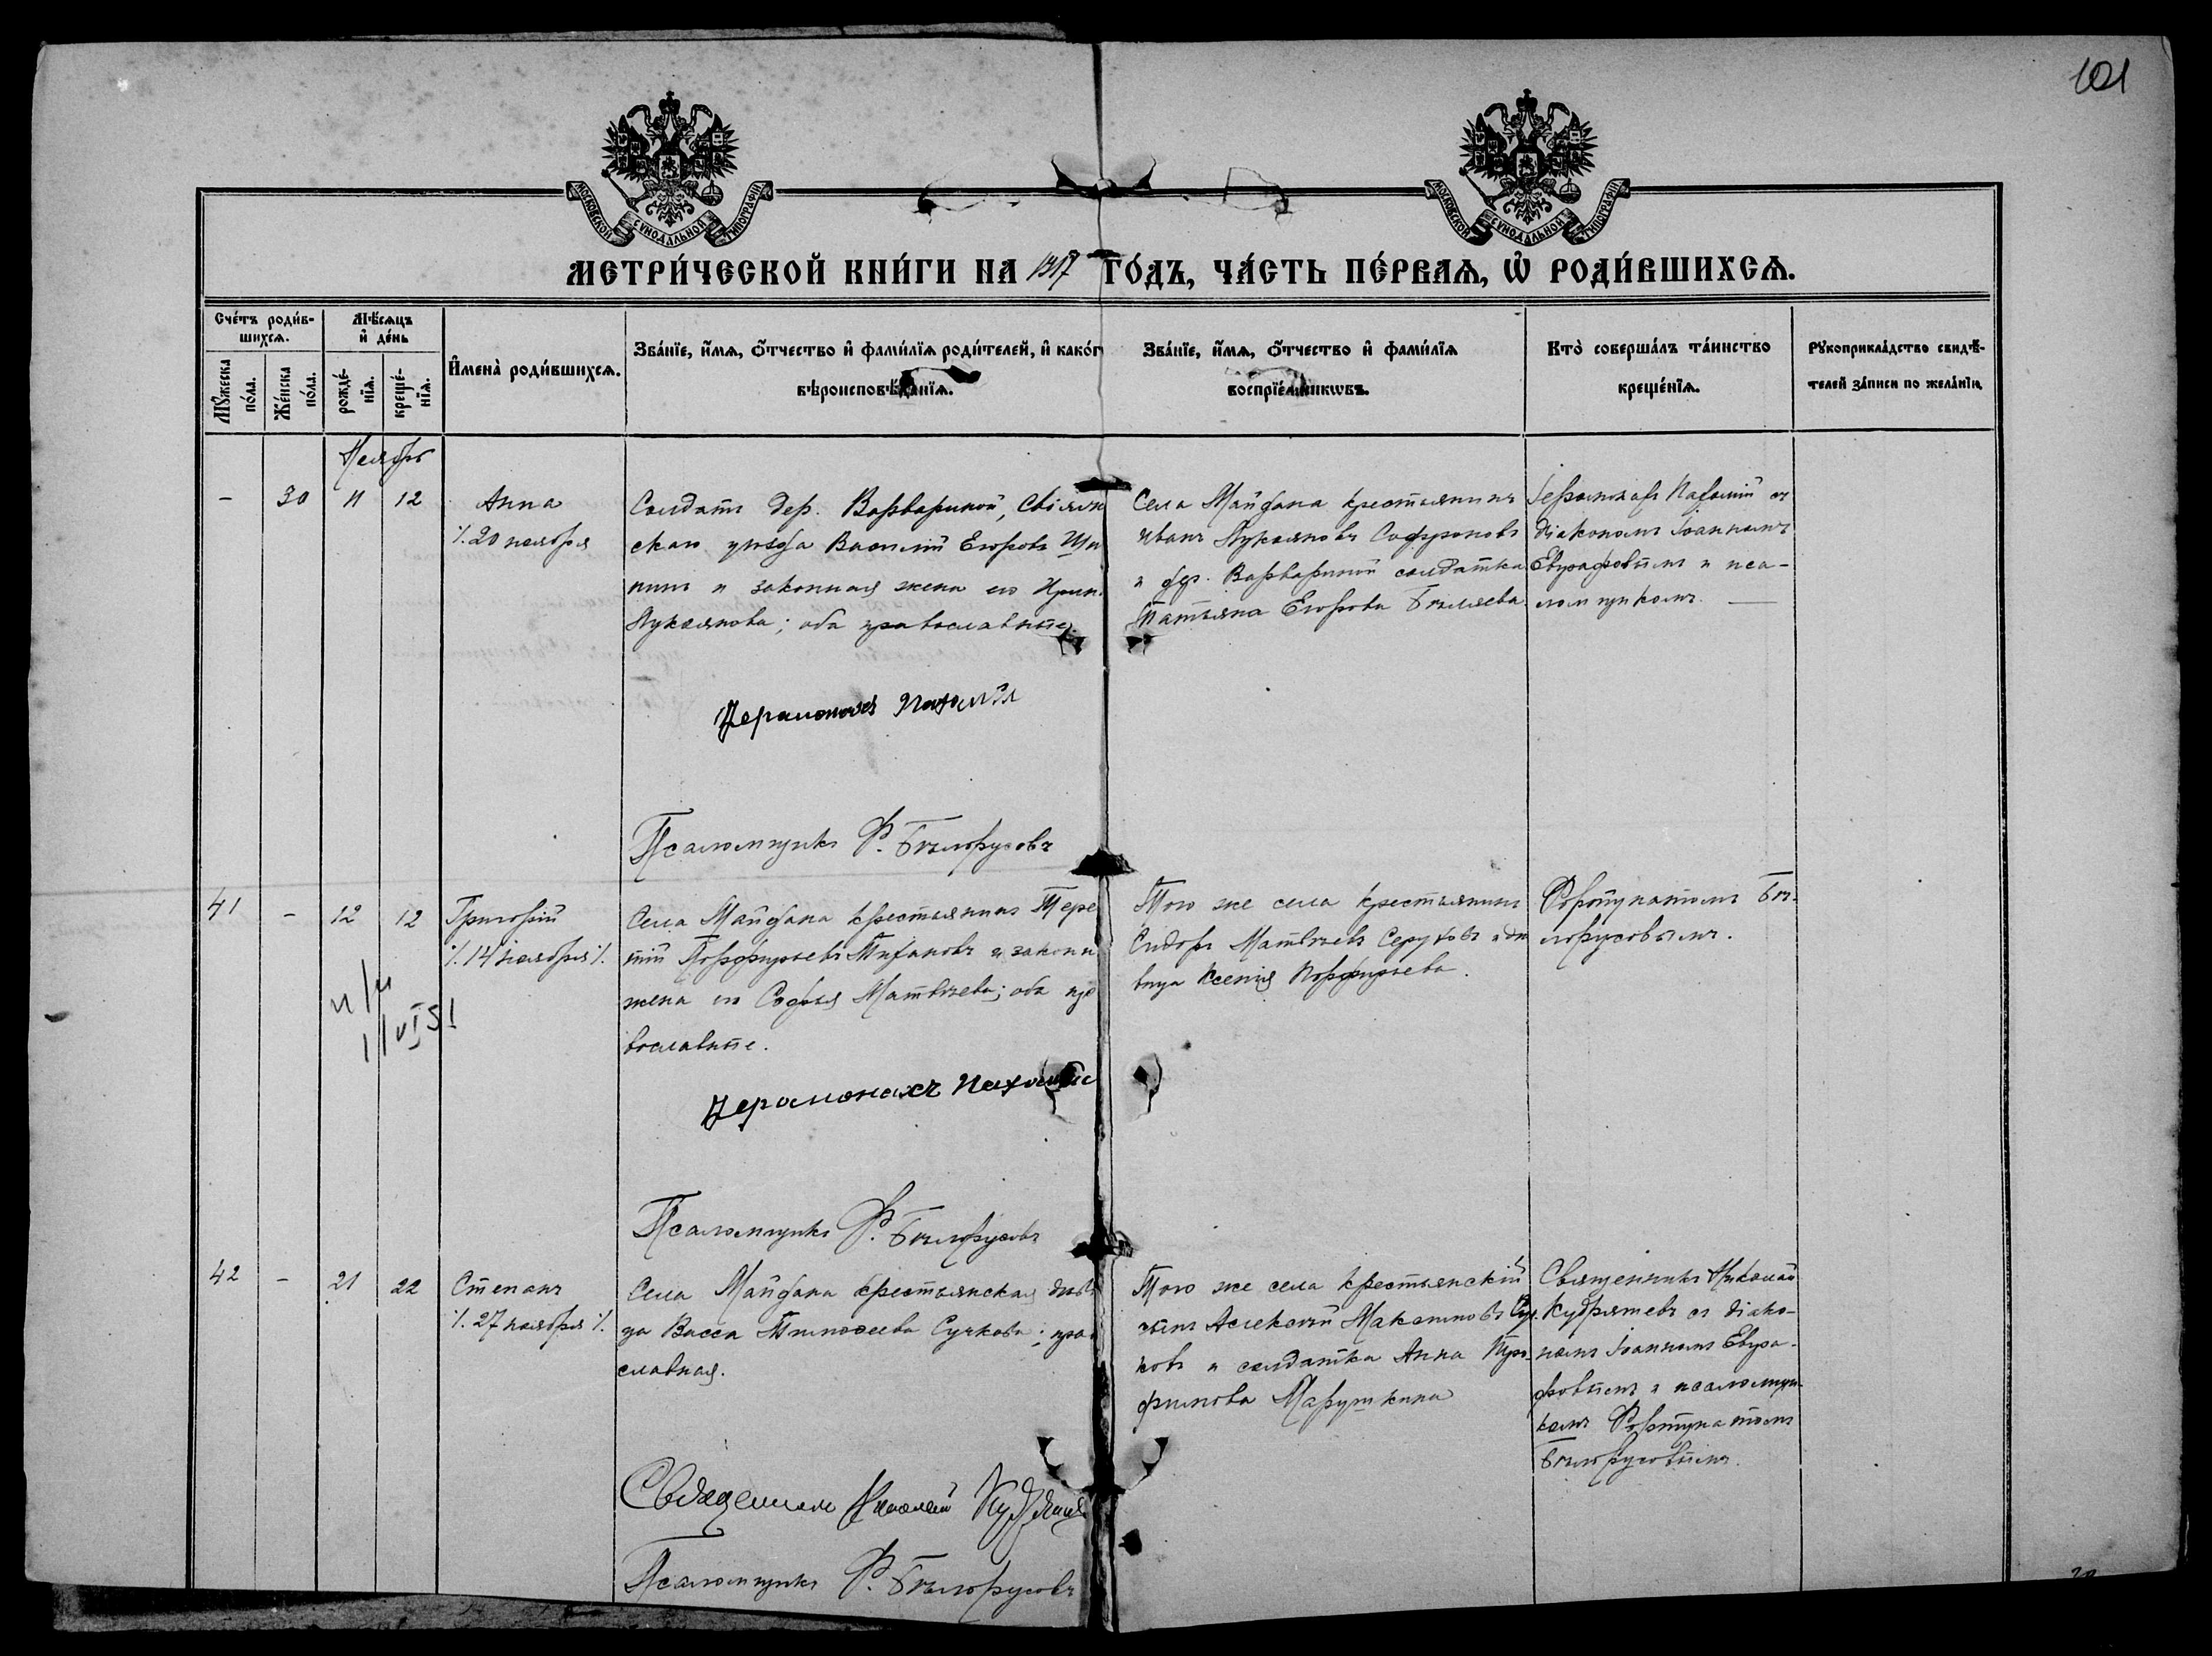 101
МОСКОВСКОЙ СѴНОДАЛЬНОЙ ТИПОГРАФІИ
МОСКОВСКОЙ СѴНОДАЛЬНОЙ ТИПОГРАФІИ
МЕТРИ́ЧЕСКОЙ КНИ́ГИ НА 1917 ГО́ДЪ, ЧА́СТЬ ПЕ́РВАѦ, Ѡ҆ РОДИ́ВШИХСѦ.
Сче́тъ роди́в-
шихсѧ.
Мꙋ́жеска по́ла.
Же́нска по́ла.
Мѣ́сѧцъ
и҆ де́нь
рожде́-
нїѧ.
креще́-
нїѧ.
И҆мена̀ роди́вшихсѧ.
Зва́нїе, и҆́мѧ, ѻ҆́тчество и҆ фами́лїѧ роди́телей, и҆ како́г
вѣроисповѣ́данїѧ.
Зва́нїе, и҆́мѧ, ѻ҆́тчество и҆ фами́лїѧ
воспрїе́мникѡвъ.
Кто̀ соверша́лъ та́инство
креще́нїѧ.
Рꙋкоприкла́дство свидѣ́-
телей за́писи по жела́нїю.
Ноябрь
- 30 11 12
Анна
٪ 20 ноября
Солдатъ дер. Варвариной, Свіяж
скаго уѣзда Василій Егоровъ
и законная жена его Ирин.
Лукоянова; оба православные.
Іеромонахъ Пахомій
Псаломщикъ Ф. Бѣлорусовъ
Села Майдана крестьянинъ
Иванъ Лукояновъ Софроновъ
и дер. Варвариной солдатка
Татьяна Егорова Бѣляева
Іеромонахъ Пахомій съ
діакономъ Іоанномъ
Евграфовымъ и пса-
ломщикомъ
41 - 12 12
Григорій
٪ 14 ноября ٪
Села Майдана крестьянинъ Тере
тій Порфирьевъ Тихановъ и законн
жена его Софья Матвѣева; оба пра
вославные.
Іеромонахъ Пахомій
Псаломщикъ Ф. Бѣлорусовъ
Того же села крестьянинъ
Сидоръ Матвѣевъ и дѣ
вица Ксенія Порфирьева.
Фортунатомъ Бѣ-
лорусовымъ.
42 - 21 22
Степанъ
٪ 27 ноября ٪
Села Майдана крестьянская дѣви
ца Васса Тимоѳеева Сучкова; право
славная.
Священникъ Николай Кудряшевъ
Псаломщикъ Ф. Бѣлорусовъ
Того же села крестьянскій
сынъ Алексѣй Максимовъ Суч-
ковъ и солдатка Анна Тро-
фимова Марушкина
Священникъ Николай
Кудряшевъ съ діако-
номъ Іоанномъ Евгра-
фовымъ и псаломщи-
комъ Фортунатомъ
Бѣлорусовымъ.